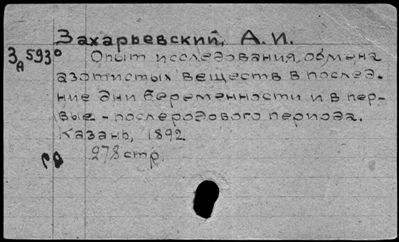 Захарьевский, А.И.
З593° Опыт исследования обмена
А
азотистых веществ в послед.
ние дни беременности и в пер-
вые - послеродового периода.
Казань, 1892
278 стр.